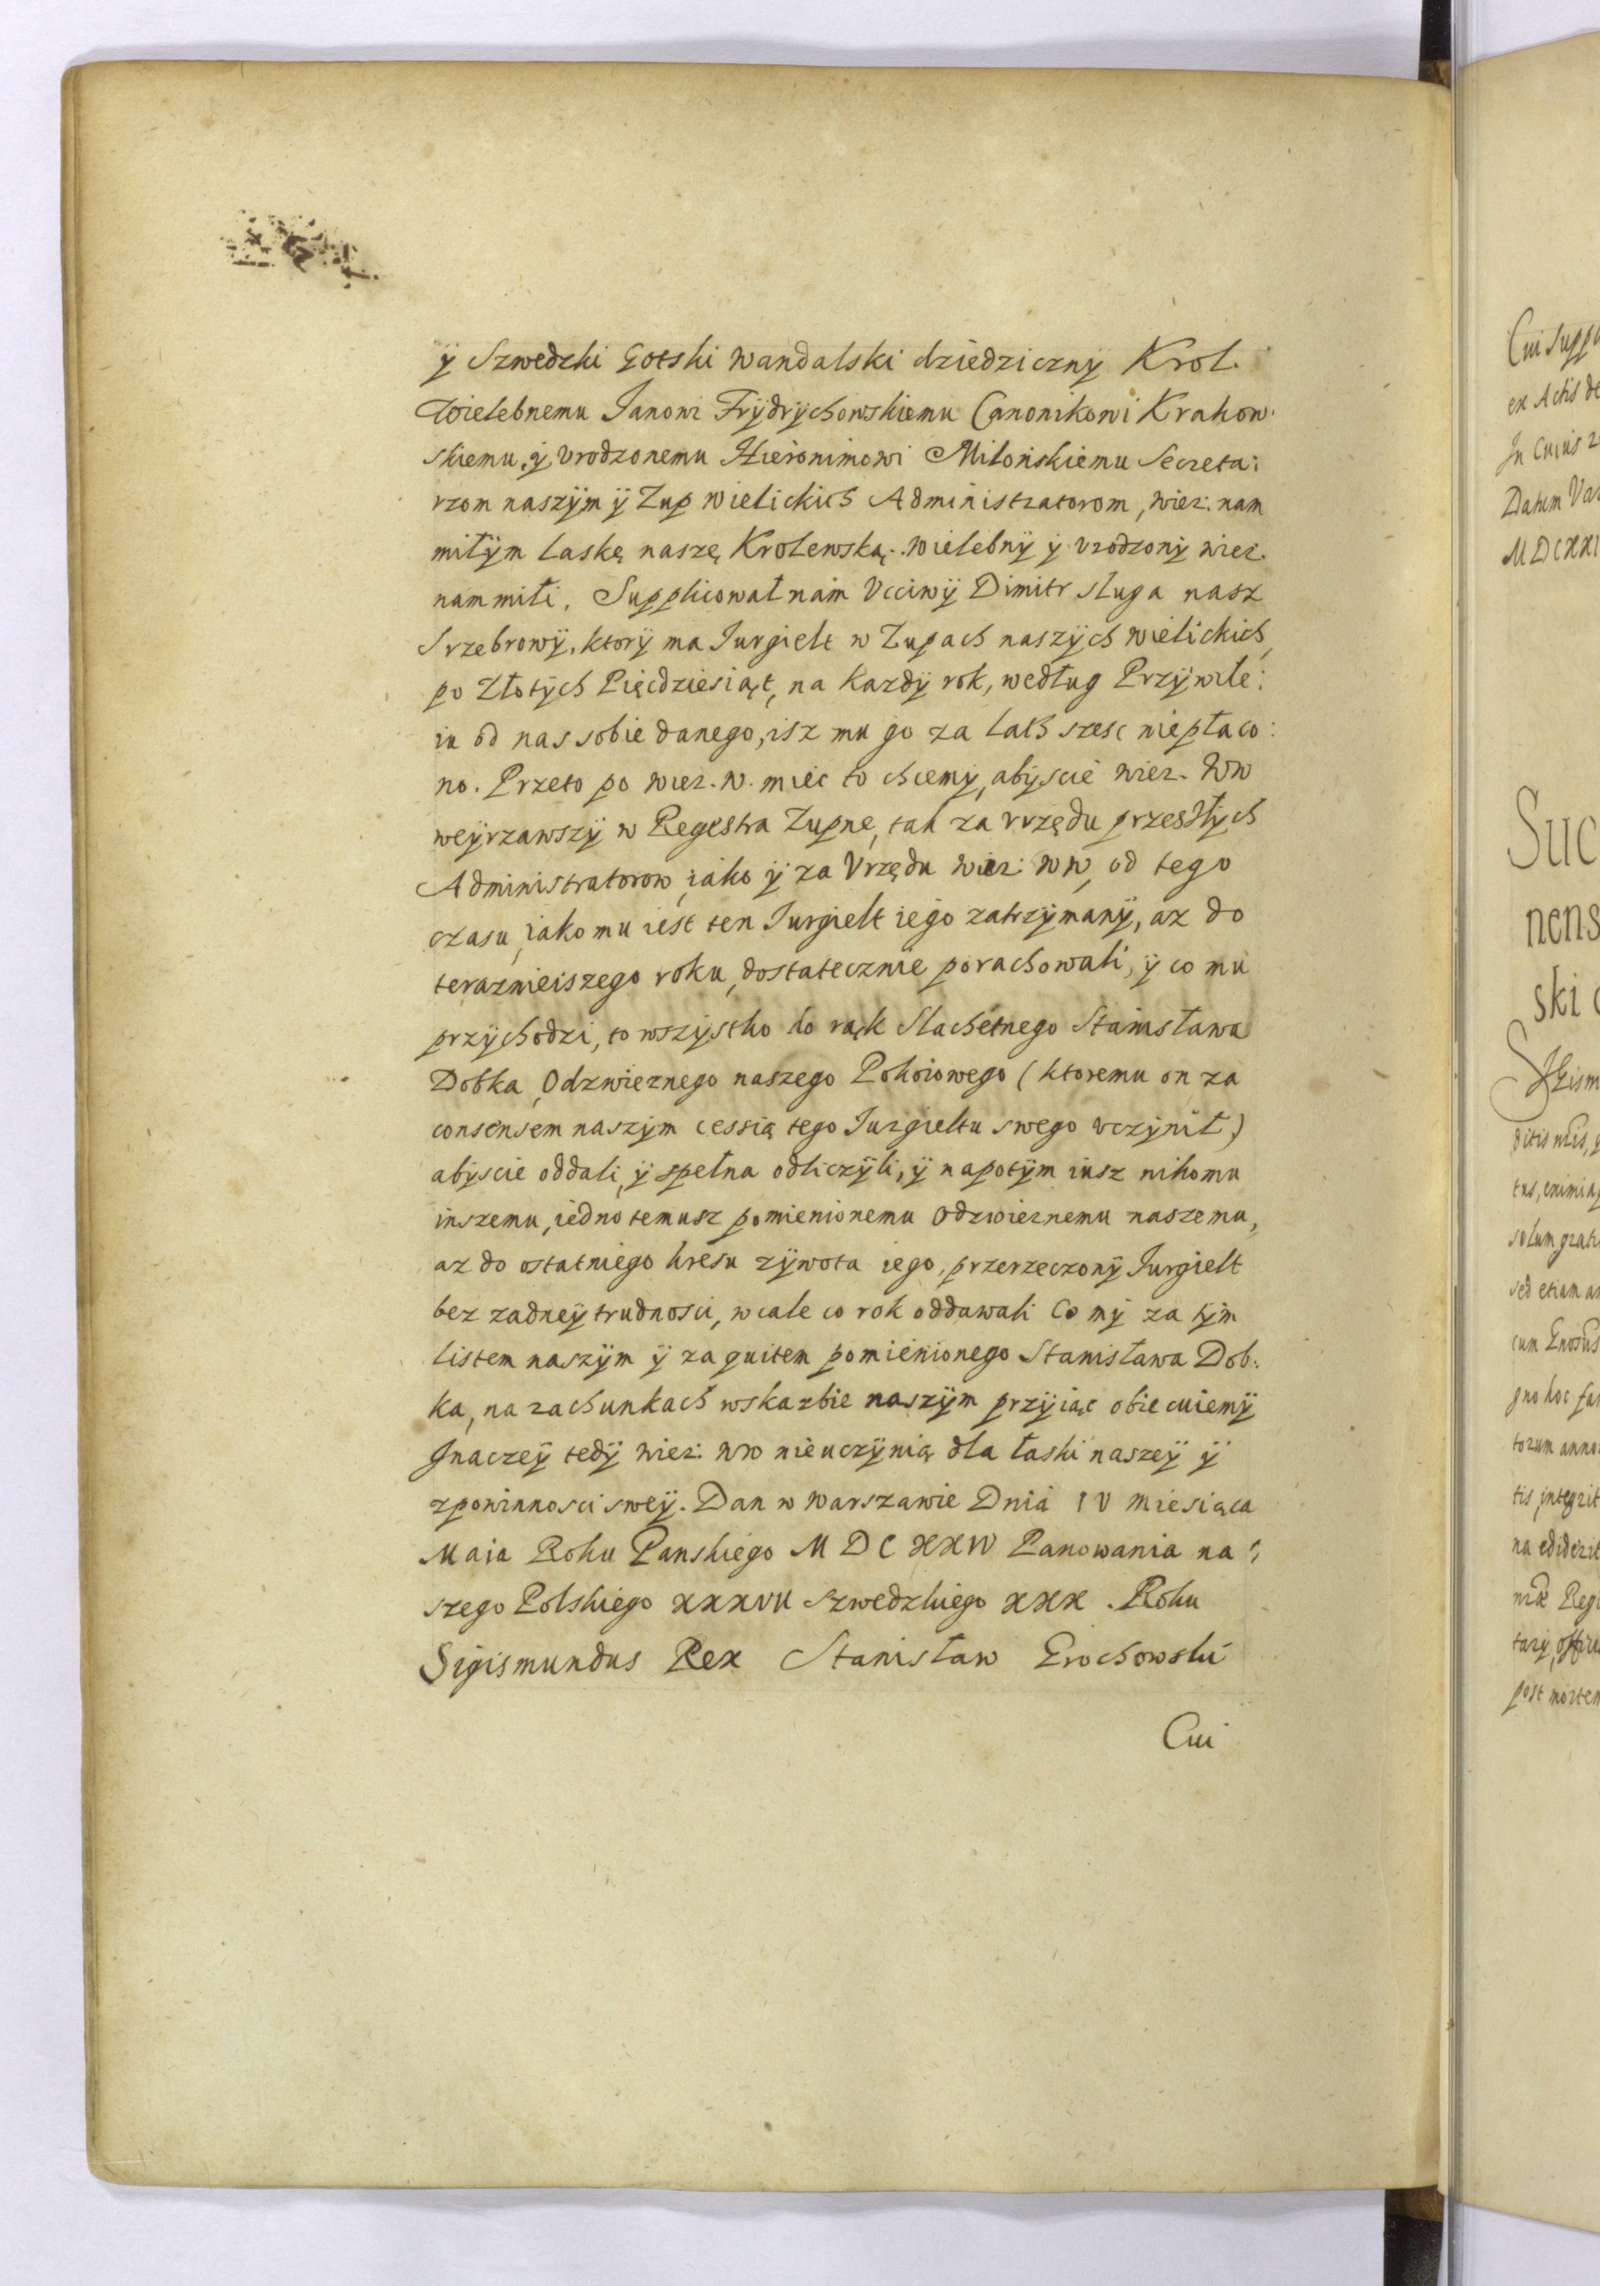 ÿ Szwedzki Gotski Wandalski dziedziczny Krol.
Wielebnemu Janowi Frÿdrÿchowskiemu Canonikowi Krakow:
skiemu, ÿ Vrodzonemu Hieronimowi Milońskiemu Secreta:
rzom naszÿm ÿ Zup Wielickich Administratorom, wier: nam
miłÿm Laskę naszę Krolewską. Wielebnÿ ÿ Vrodzonÿ wier.
nam mili. Supplicował nam Vcciwÿ Dimitr sługa nasz
Srzebrowÿ, ktorÿ ma Jurgielt w Zupach naszÿch Wielickich,
po Złotÿch Pięcdziesiąt, na kazdÿ rok, według Przÿwile:
iu od nas sobie danego, isz mu go za lath szesc niepłaco:
no. Przeto po wier. w. miec to chcemÿ, abÿscie wier. Ww
weÿrzawszÿ w Regestra Zupne, tak za vrzędu przeszłÿch
Administratorow, iako ÿ za Vrzędu wier: ww, od tego
czasu, iako mu iest ten Jurgielt iego zatrzÿmanÿ, az do
teraznieiszego roku, dostatecznie porachowali, ÿ co mu
przÿchodzi, to wszÿstko do rąk Slachetnego Stanisława
Dobka, Odzwiernego naszego Pokoiowego (ktoremu on za
consensem naszÿm cessią tego Jurgieltu swego vczÿnił)
abÿscie oddali, ÿ spełna odliczÿli, ÿ napotÿm iusz nikomu
inszemu, iedno temusz pomienionemu Odzwiernemu naszemu,
az do ostatniego kresu zÿwota iego, przerzeczonÿ Jurgielt
bez zadneÿ trudnosci, wcale co rok oddawali Co mÿ za tÿm
listem naszÿm ÿ za quitem pomienionego Stanisława Dob:
ka, na rachunkach wskarbie naszÿm przÿiąc obiecuiemÿ
Jnaczeÿ tedÿ wier: ww nieuczÿnią dla łaski naszeÿ ÿ
zpowinnosci sweÿ. Dan w Warszawie Dnia IV Miesiąca
Maia Roku Panskiego MDCXXIV Panowania na:
szego Polskiego XXXVII Szwedzkiego XXX. Roku
Sigismundus Rex Stanisław Grochowski
Cui